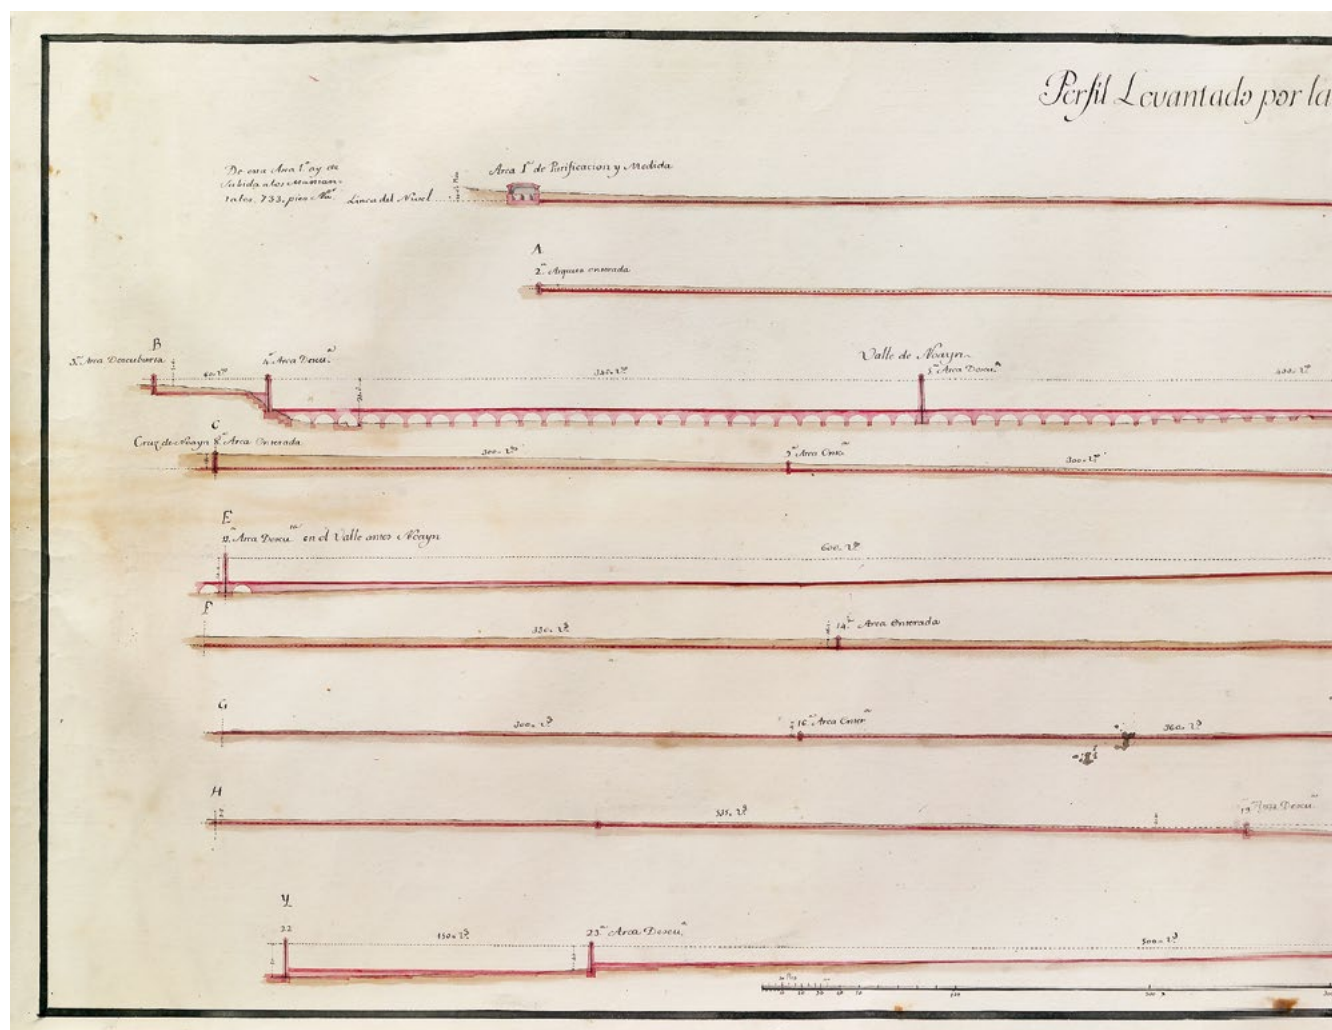 Perfil Levantado por la
De esta Arca 1.ª ay de
Subida a los Manan-
tales, 733. pies
Linea del Nivel
Arca 1ª de Purificacion y Medida
A
2ª Arqueta enterada
B
3ª Arca Descubierta
4ª Arca Descuª
Valle de Noayn
5ª Arca Descuª
60. Vs
400. Vs
C
Cruz de Noayn 8ª Arca Enterada
300. Vs
9ª Arca
300. Vs
E
12ª Arca Descuª en el Valle antes Noayn
600. Vs
F
330. Vs
14ª Arca Enterada
G
300. Vs
16ª Arca Enterª
360. Vs
H
19ª Arca Descuª
Y
22
150. Vs
23ª Arca Descuª
500. Vs